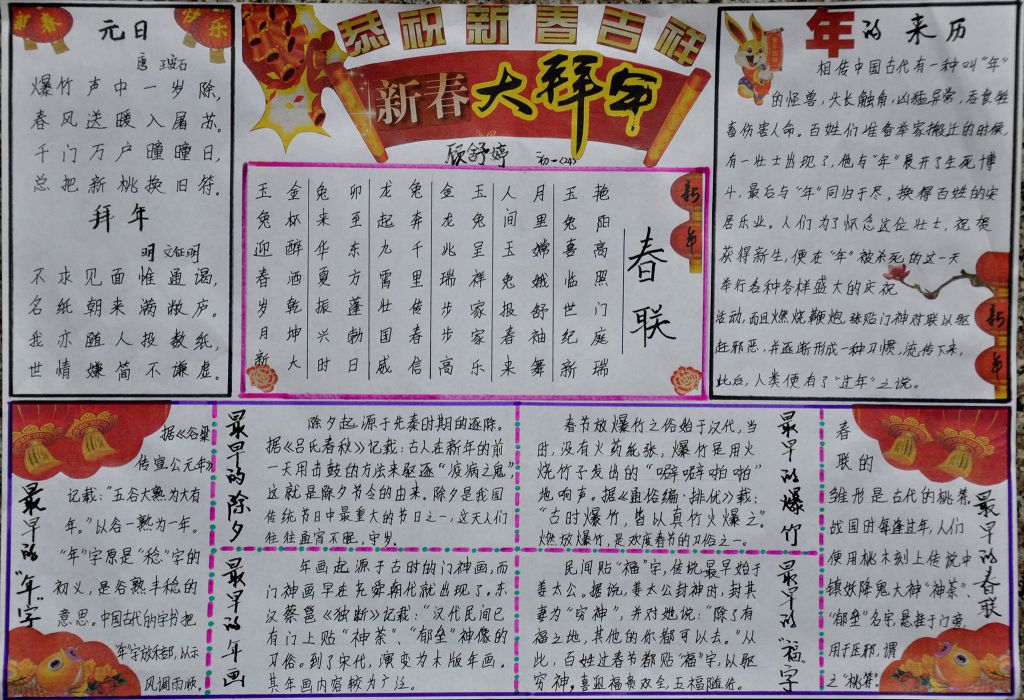 新春
快乐
元日
唐 王安石
爆竹声中一岁除,
春风送暖入屠苏。
千门万户曈曈日,
总把新桃换旧符。
拜年
明 文征明
不求见面惟通谒,
名纸朝来满敝庐。
我亦随人投数纸,
世情嫌简不嫌虚。
恭祝新春吉祥
新春大拜年
顾舒婷 初一(24)
春联
玉兔迎春岁月新
金杯醉酒乾坤大
兔来华夏振兴时
卯至东方蓬勃日
龙起九霄壮国威
兔奔千里传春信
金龙兆瑞步步高
玉兔呈祥家家乐
人间玉兔报春来
月里嫦娥舒袖舞
玉兔喜临世纪新
艳阳高照门庭瑞
新年
年的来历
相传中国古代有一种叫“年”
的怪兽,头长触角,凶猛异常,吞食牲
畜伤害人命。百姓们准备举家搬迁的时候,
有一壮士出现了,他与“年”展开了生死博
斗,最后与“年”同归于尽,换得百姓的安
居乐业。人们为了怀念这位壮士,祝贺
获得新生,便在“年”被杀死的这一天
举行各种各样盛大的庆祝
活动,而且燃烧鞭炮,张贴门神对联以驱
赶邪恶,并逐渐形成一种习惯,流传下来,
此后,人类便有了“过年”之说。
新年
最早的“年”字
据《谷梁
传宣公元年》
记载:“五谷大熟为大有
年。”以谷一熟为一年。
“年”字原是“稔”字的
初义,是谷熟丰稔的
意思。中国古代的字书把
“年”字放禾部,以示
风调雨顺,
最早的除夕
除夕起源于先秦时期的逐除。
据《吕氏春秋》记载:古人在新年的前
一天用击鼓的方法来驱逐“疫病之鬼”,
这就是除夕节令的由来。除夕是我国
传统节日中最重大的节日之一,这天人们
往往通宵不眠,守岁。
最早的爆竹
春节放爆竹之俗始于汉代,当
时,没有火药纸张,爆竹是用火
烧竹子发出的“噼噼啪啪”
地响声。据《通俗编·排优》载:
“古时爆竹,皆以真竹火爆之”。
燃放爆竹,是欢度春节的习俗之一。
最早的年画
年画起源于古时的门神画,而
门神画早在尧舜朝代就出现了。东
汉蔡邕《独断》记载:“汉代民间已
有门上贴“神荼”、“郁垒”神像的
习俗。到了宋代,演变为木版年画。
其年画内容较为广泛。
最早的“福”字
民间贴“福”字,传说最早始于
姜太公。据说,姜太公封神时,封其
妻为“穷神”,并对她说:“除了有
福之地,其他的你都可以去。”从
此,百姓过春节都贴“福”字,以驱
穷神,喜迎福贵双全,五福随临。
最早的春联
春
联的
雏形是古代的桃符。
战国时每逢过年,人们
便用桃木刻上传说中
镇妖降鬼大神“神荼”、
“郁垒”名字悬挂于门旁,
用于压邪,谓
之“桃符”。